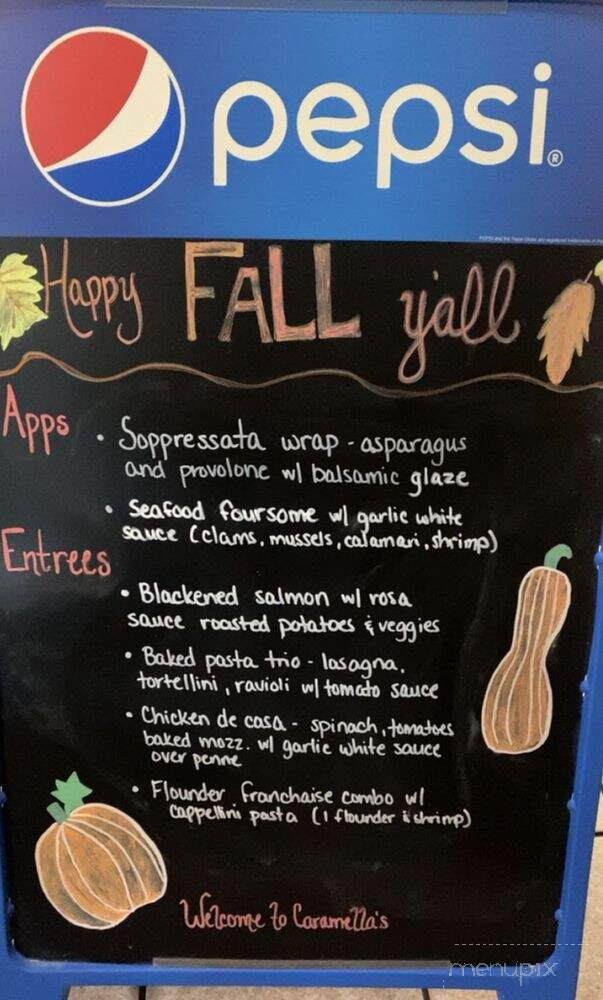 pepsi®
Happy FALL y'all
Apps
• Soppressata wrap - asparagus
and provolone w/ balsamic glaze
• Seafood foursome w/ garlic white
sauce (clams, mussels, calamari, shrimp)
Entrees
• Blackened salmon w/ rosa
sauce roasted potatoes & veggies
• Baked pasta trio - lasagna,
tortellini, ravioli w/ tomato sauce
• Chicken de casa - spinach, tomatoes
baked mozz. w/ garlic white sauce
over penne
• Flounder franchaise combo w/
cappellini pasta (1 flounder & shrimp)
Welcome to Caramella's
menupix